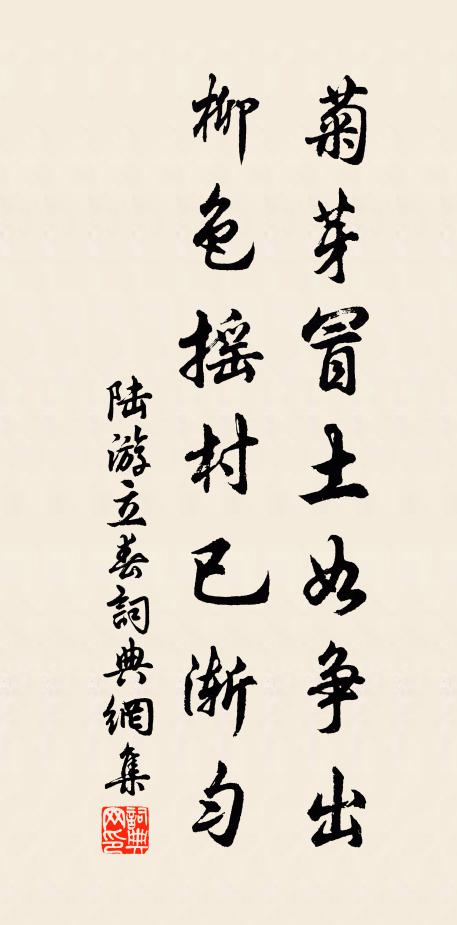 菊芽冒土如争出
柳色摇村已渐匀
陆游立春詞典網集
詞典网印